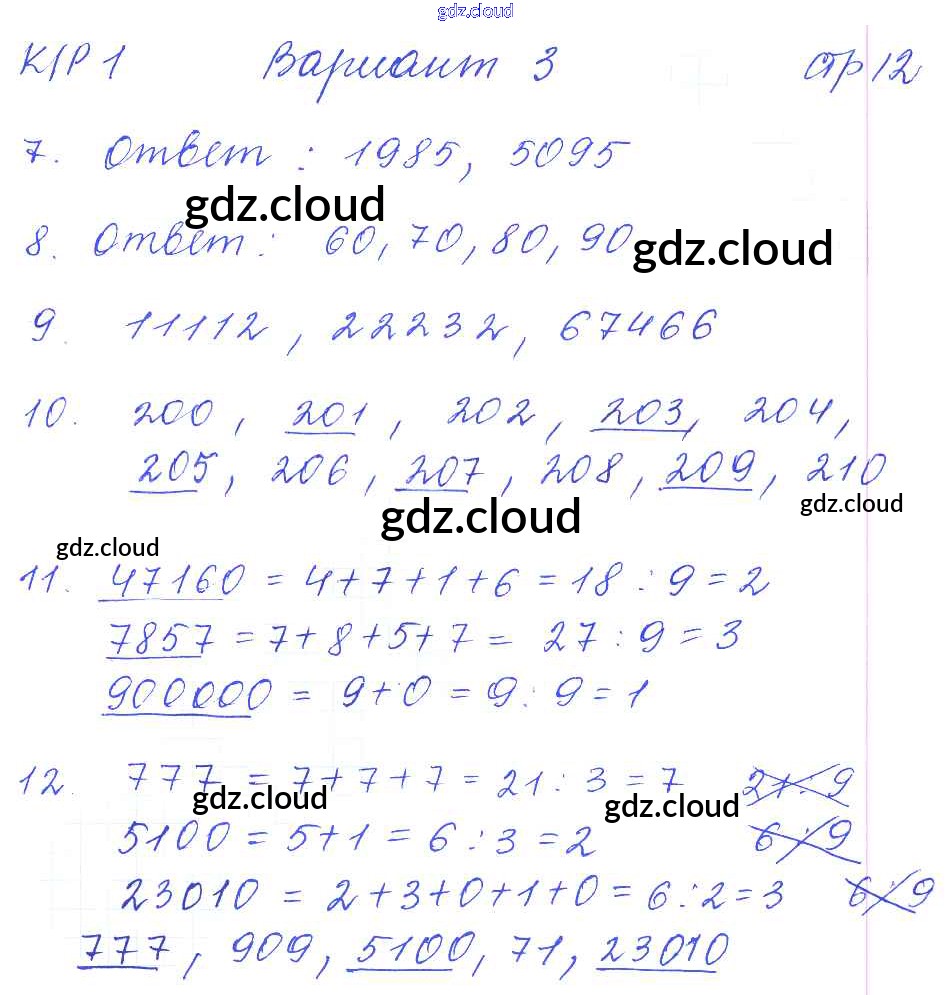 gdz.cloud
К/Р 1 Вариант 3 стр 12
7. Ответ: 1985, 5095
gdz.cloud
8. Ответ: 60, 70, 80, 90
gdz.cloud
9. 11112, 22232, 67466
10. 200, 201, 202, 203, 204,
205, 206, 207, 208, 209, 210
gdz.cloud
gdz.cloud
gdz.cloud
11. 47160 = 4+7+1+6 = 18 : 9 = 2
7857 = 7+8+5+7 = 27 : 9 = 3
900000 = 9+0 = 9 : 9 = 1
12. 777 = 7+7+7 = 21 : 3 = 7 21 : 9
gdz.cloud
gdz.cloud
5100 = 5+1 = 6 : 3 = 2 6 : 9
23010 = 2+3+0+1+0 = 6 : 2 = 3 6 : 9
777, 909, 5100, 71, 23010